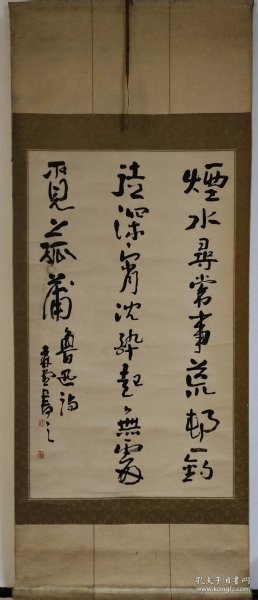 煙水尋常事荒邨一釣
徒深宵沈醉起無處
覓菰蒲
魯迅詩
書之
孔夫子旧书网
www.kongfz.com